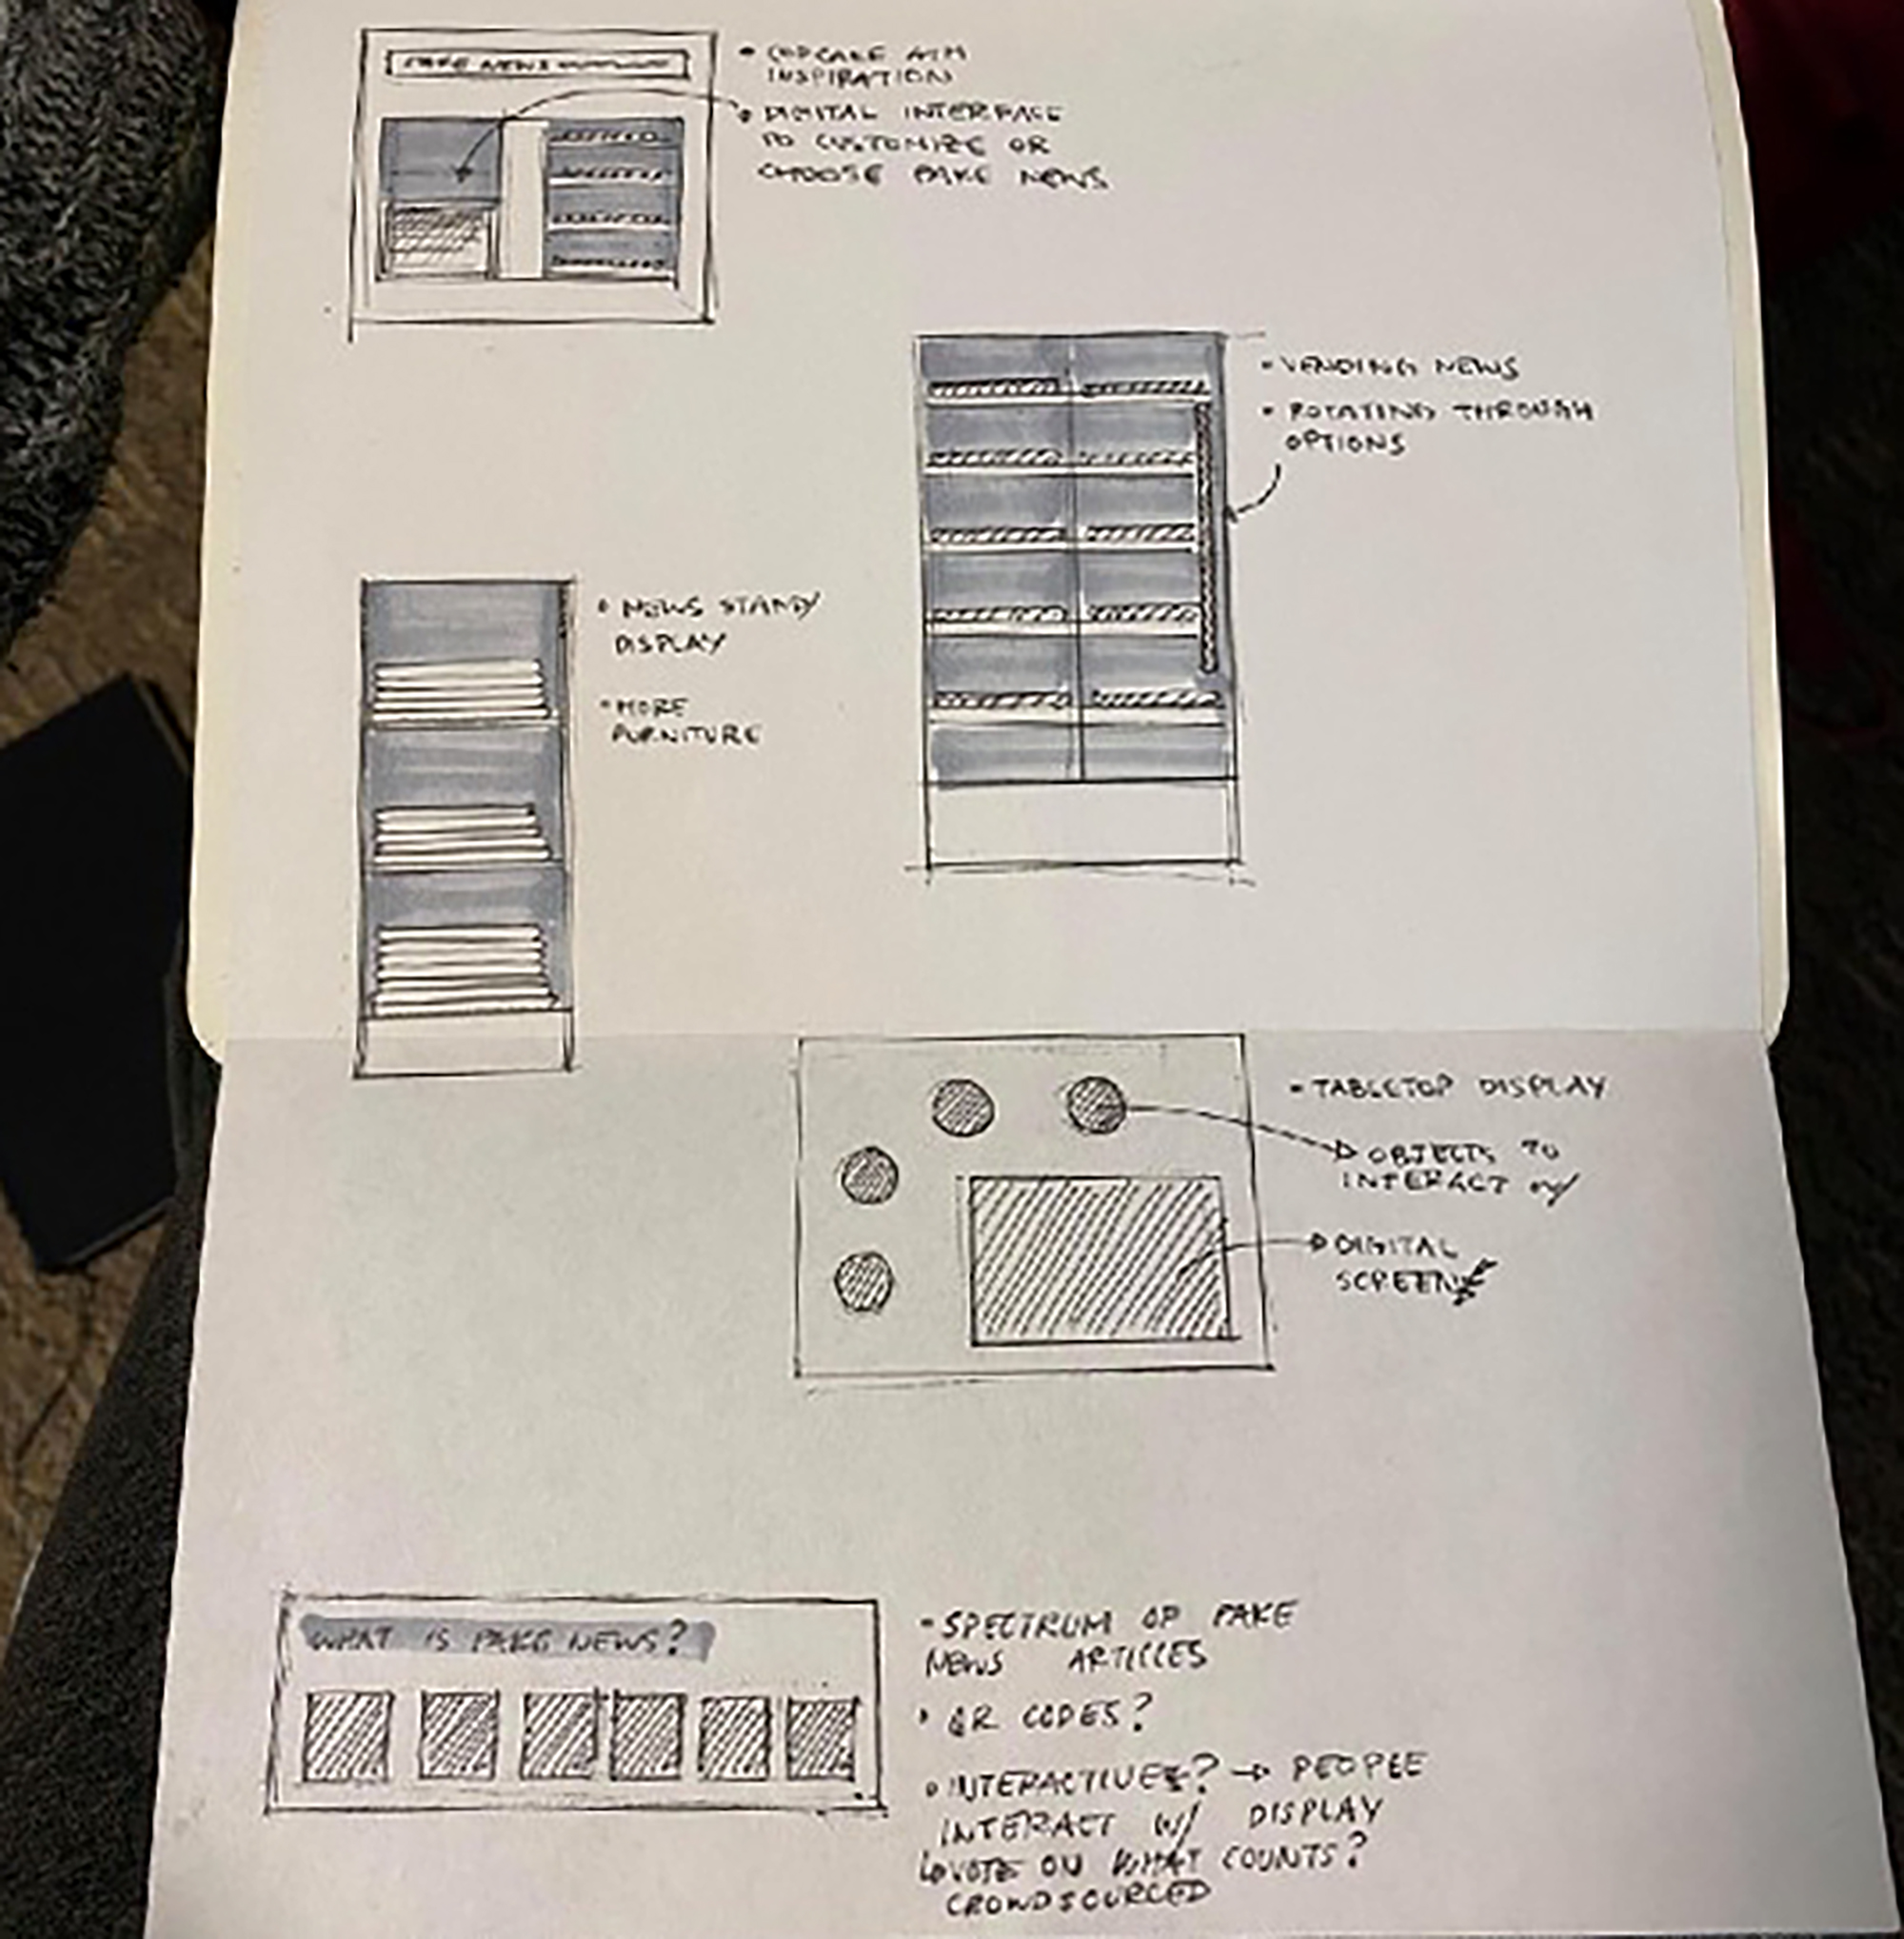 FAKE NEWS
• CUPCAKE ATM
INSPIRATION
• DIGITAL INTERFACE
TO CUSTOMIZE OR
CHOOSE FAKE NEWS
• VENDING NEWS
• ROTATING THROUGH
OPTIONS
• NEWS STAND/
DISPLAY
• MORE
FURNITURE
• TABLETOP DISPLAY
OBJECTS TO
INTERACT W/
DIGITAL
SCREEN
WHAT IS FAKE NEWS?
• SPECTRUM OF FAKE
NEWS ARTICLES
• QR CODES?
• INTERACTIVE? → PEOPLE
INTERACT W/ DISPLAY
↳ VOTE ON WHAT COUNTS?
CROWDSOURCED